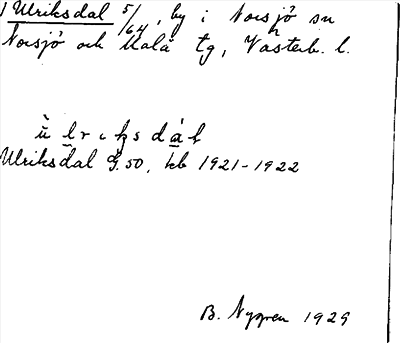 Ulriksdal 5/64, by i Norsjö sn
Norsjö och Malå tg, Västerb. l.
ù l r ı k s d á l
Ulriksdal G. 50, kb 1921-1922
B. Nygren 1929